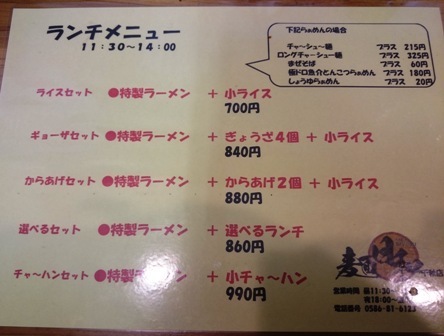 ランチメニュー
11:30~14:00
下記らぁめんの場合
チャ～シュ～麺 プラス 215円
ロングチャーシュー麺 プラス 325円
まぜそば プラス 60円
極ドロ魚介とんこつらぁめん プラス 180円
しょうゆらぁめん プラス 20円
ライスセット ●特製ラーメン + 小ライス
700円
ギョーザセット ●特製ラーメン + ぎょうざ4個 + 小ライス
840円
からあげセット ●特製ラーメン + からあげ2個 + 小ライス
880円
選べるセット ●特製ラーメン + 選べるランチ
860円
チャ～ハンセット ●特製ラーメン + 小チャ～ハン
990円
営業時間 昼11:30~
夜18:00~
電話番号 0586-81-6123